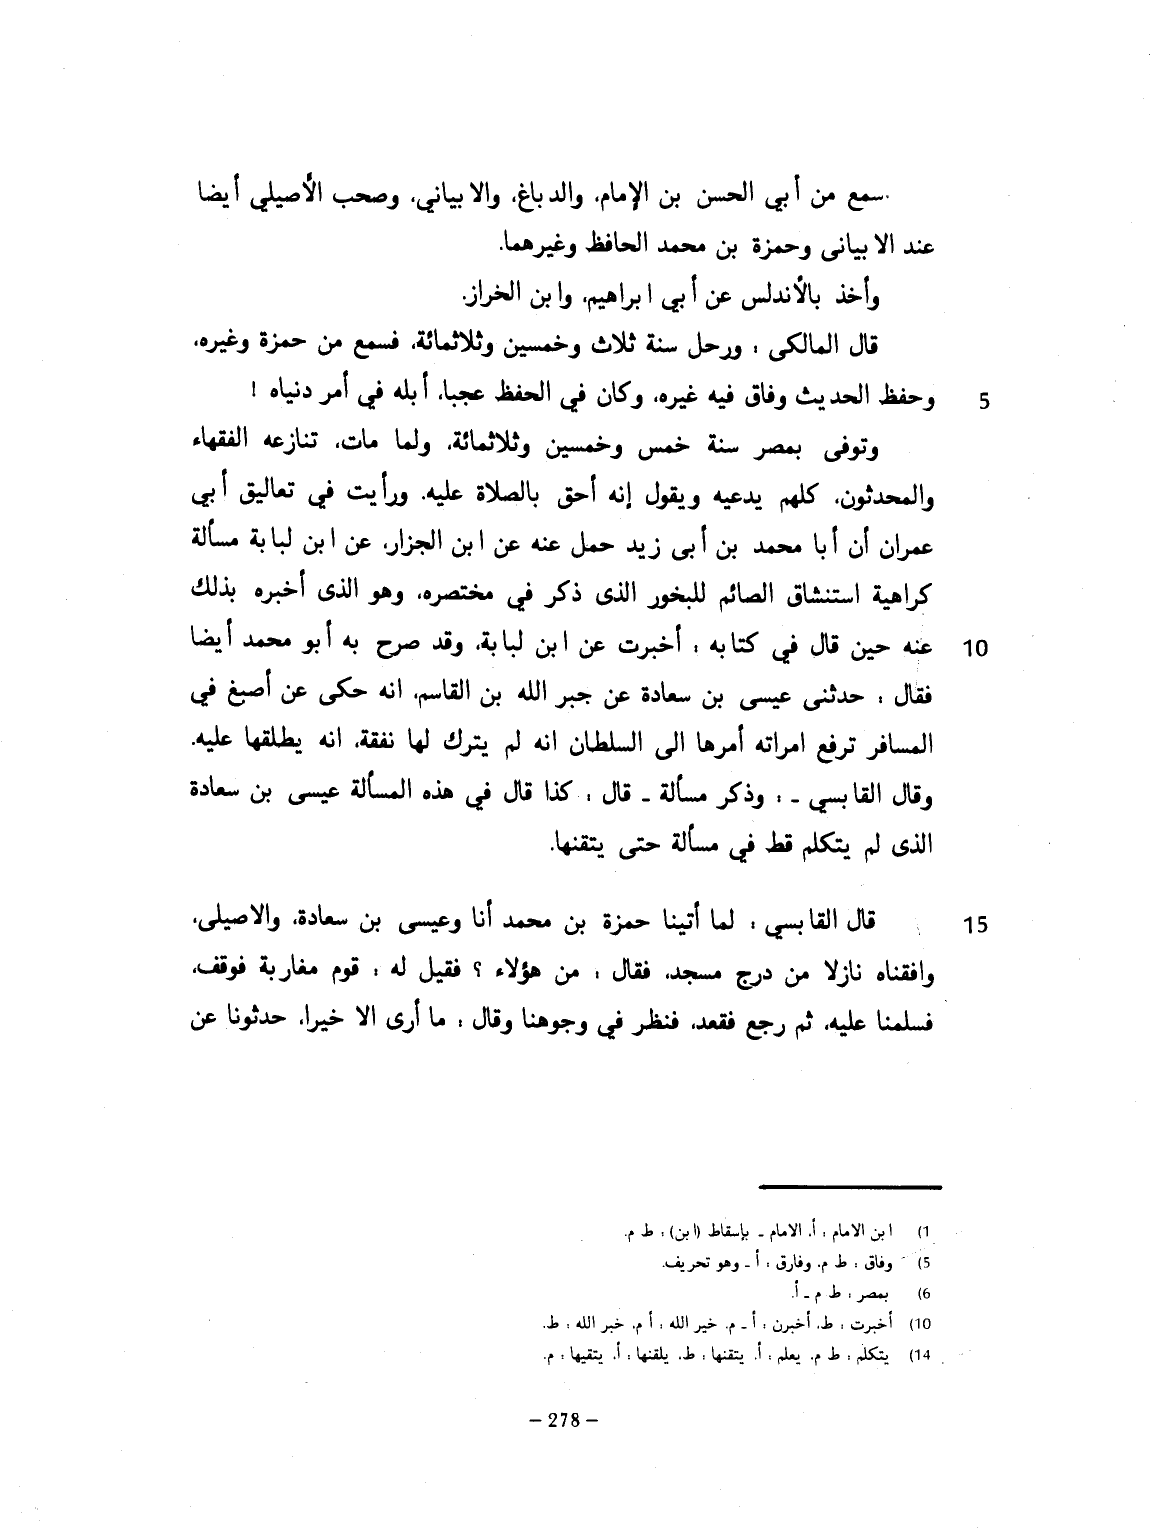 سمع من أبي الحسن بن الإمام، والدباغ، والابياني، وصحب الأصيلي أيضا
عند الابيانى وحمزة بن محمد الحافظ وغيرهما.
وأخذ بالأندلس عن أبي ابراهيم، وابن الخراز.
قال المالكى : ورحل سنة ثلاث وخمسين وثلاثمائة، فسمع من حمزة وغيره،
وحفظ الحديث وفاق فيه غيره، وكان في الحفظ عجبا، أبله في أمر دنياه ! 5
وتوفى بمصر سنة خمس وخمسين وثلاثمائة، ولما مات، تنازعه الفقهاء
والمحدثون، كلهم يدعيه ويقول إنه أحق بالصلاة عليه. ورأيت في تعاليق أبي
عمران أن أبا محمد بن أبى زيد حمل عنه عن ابن الجزار، عن ابن لبابة مسألة
كراهية استنشاق الصائم للبخور الذى ذكر في مختصره، وهو الذى أخبره بذلك
عنه حين قال في كتابه : أخبرت عن ابن لبابة، وقد صرح به أبو محمد أيضا 10
فقال : حدثنى عيسى بن سعادة عن جبر الله بن القاسم، انه حكى عن أصبغ في
المسافر ترفع امراته أمرها الى السلطان انه لم يترك لها نفقة، انه يطلقها عليه.
وقال القابسي - : وذكر مسألة - قال : كذا قال في هذه المسألة عيسى بن سعادة
الذى لم يتكلم قط في مسألة حتى يتقنها.
قال القابسي : لما أتينا حمزة بن محمد أنا وعيسى بن سعادة، والاصيلى، 15
وافقناه نازلا من درج مسجد، فقال : من هؤلاء ؟ فقيل له : قوم مغاربة فوقف،
فسلمنا عليه، ثم رجع فقعد، فنظر في وجوهنا وقال : ما أرى الا خيرا، حدثونا عن
1) ابن الامام : أ. الامام - بإسقاط (ابن) : ط م.
5) وفاق : ط م. وفارق : أ - وهو تحريف.
6) بمصر : ط م - أ.
10) أخبرت : ط. أخبرن : أ - م. خير الله : أ م. خبر الله : ط.
14) يتكلم : ط م. يعلم : أ. يتقنها : ط. يلقنها : أ. يتقيها : م.
- 278 -